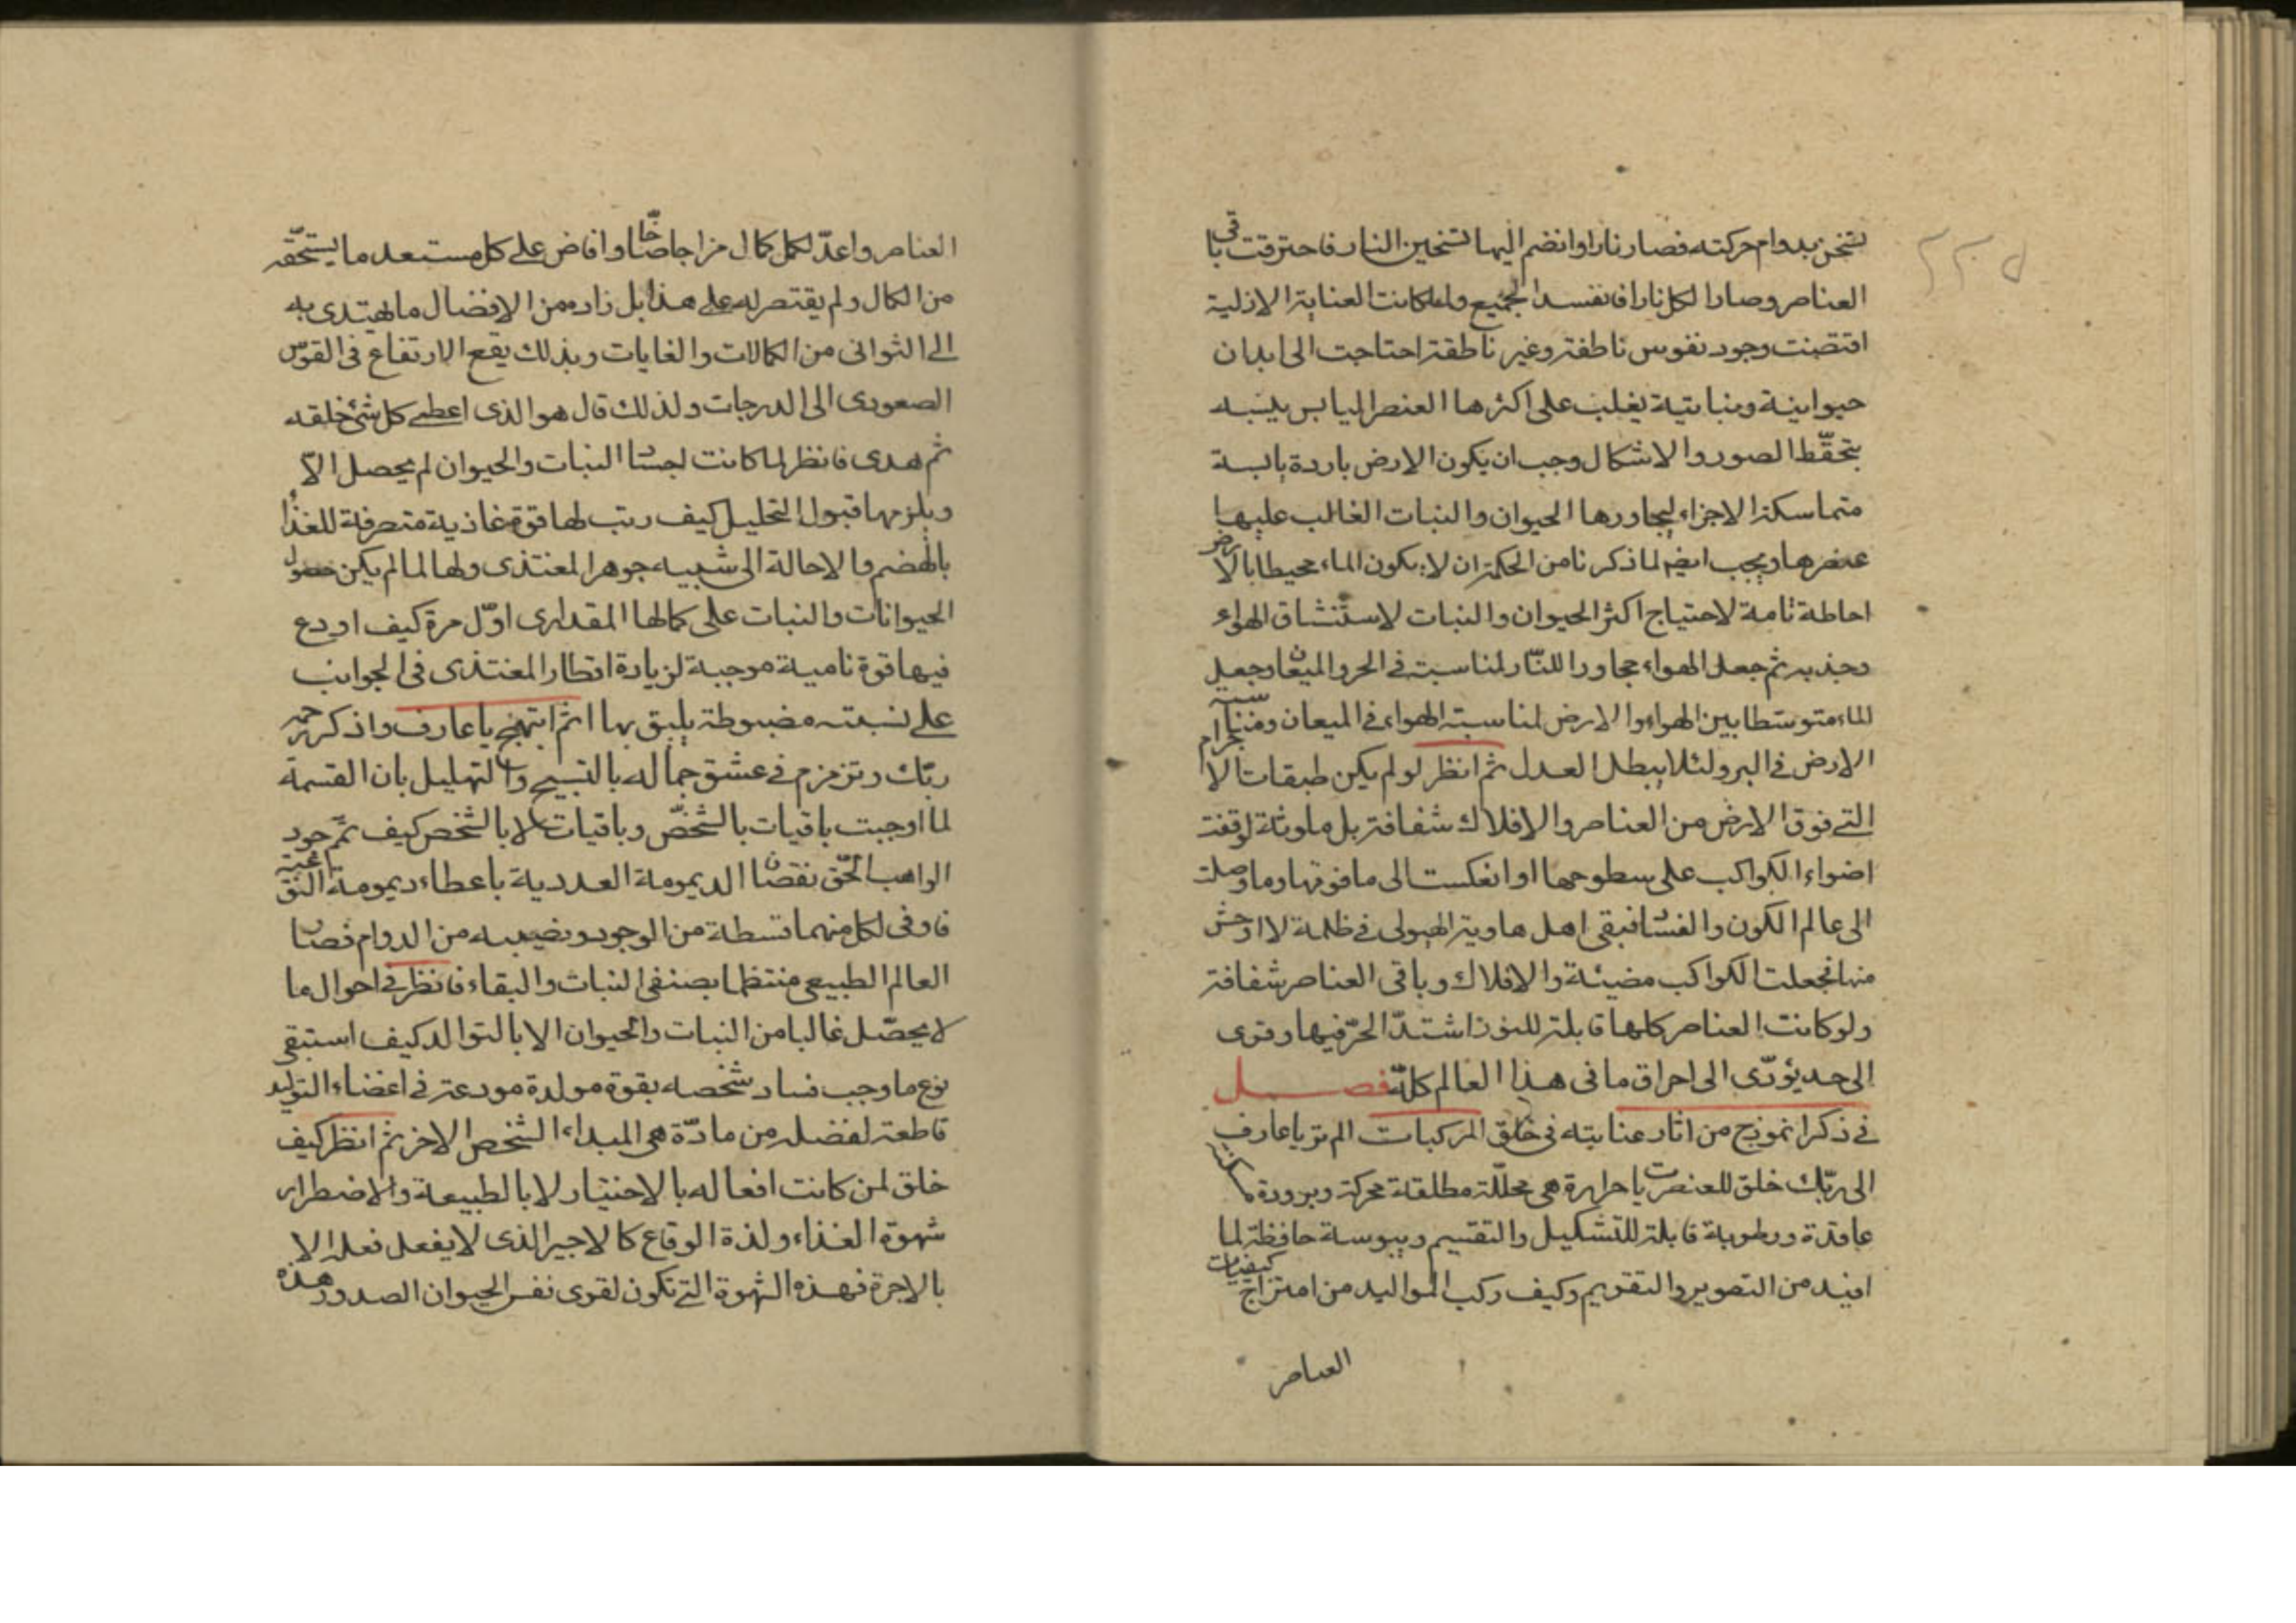 لتسخن بدوام حركته فصار نارا وانضم اليها تسخين النار فاحترقت باقى
العناصر وصار الكل نارا فانفسد الجميع ولما كانت العناية الازلية
اقتضت وجود نفوس ناطقة وغير ناطقة احتاجت الى ابدان
حيوانية ونباتية يغلب على اكثرها العنصر اليابس
يتحفظ الصور والاشكال وجب ان يكون الارض باردة يابسة
متماسكة الاجزاء ليجاورها الحيوان والنبات الغالب عليها
عنصرها ويجب ايضا لما ذكرنا من الحكمة ان لا يكون الماء محيطا بالارض
احاطة تامة لاحتياج اكثر الحيوان والنبات لاستنشاق الهواء
وجذبه ثم جعل الهواء مجاورا للنار لمناسبة في الحر والميعان وجعل
الماء متوسطا بين الهواء والارض لمناسبته الهواء في الميعان ومناسبته
الارض في البرد لئلا يبطل العدل ثم انظر لو لم يكن طبقات الاجرام
التي فوق الارض من العناصر والافلاك شفافة بل ملونة لوقفت
اضواء الكواكب على سطوحها او انعكست الى ما فوقها وما وصلت
الى عالم الكون والفساد فبقى اهل هاوية الهيولى في ظلمة لا اوحش
منها فجعلت الكواكب مضيئة والافلاك وباقى العناصر شفافة
ولو كانت العناصر كلها قابلة للنور اشتد الحر فيها وقوى
الى حد يؤدى الى احراق ما في هذا العالم كله فصل
في ذكر انموذج من اثار عنايته في خلق المركبات الم تر يا عارف
الى ربك خلق للعنصريات حرارة هى محللة مطلقة محركة وبرودة مسكنة
عاقدة ورطوبة قابلة للتشكيل والتقسيم ويبوسة حافظة لما
افيد من التصوير والتقويم وكيف ركب المواليد من امتزاج كيفيات
العناصر
العناصر واعد لكل كمال مزاجا خاصا وافاض على كل مستعد ما يستحقه
من الكمال ولم يقتصر له على هذا بل زاده من الافضال ما يهتدى به
الى الثوانى من الكمالات والغايات وبذلك يقع الارتفاع في القوس
الصعودى الى الدرجات ولذلك قال هو الذى اعطى كل شئ خلقه
ثم هدى فانظر لما كانت اجساد النبات والحيوان لم يحصل الا
ويلزمها قبول التحليل كيف رتب لها قوة غاذية متصرفة للغذاء
بالهضم والاحالة الى شبيه جوهر المغتذى ولها لما لم يكن حصول
الحيوانات والنبات على كمالها المقدارى اول مرة كيف اودع
فيها قوة نامية موجبة لزيادة اقطار المغتذى في الجوانب
على نسبته مضبوطة يليق بها ثم ابتهج يا عارف واذكر رحمة
ربك وتزمزم في عشق جماله بالتسبيح والتهليل بان القسمة
لما اوجبت باقيات بالشخص وباقيات لا بالشخص كيف تمم جود
الواهب الحق نقصان الديمومة العددية باعطاء ديمومة النوعية
فاوفى لكل منهما قسطه من الوجود ونصيبه من الدوام فصار
العالم الطبيعى منتظما بصنفى الثبات والبقاء فانظر في احوال ما
لا يحصل غالبا من النبات والحيوان الا بالتوالد كيف استبقى
نوع ما وجب فساد شخصه بقوة مولدة مودعة في اعضاء التوليد
قاطعة لفضلة من مادة هى المبداء لشخص الاخر ثم انظر كيف
خلق لمن كانت افعاله بالاختيار لا بالطبيعة والاضطرار
شهوة الغذاء ولذة الوقاع كالاجير الذى لا يفعل فعله الا
بالاجرة فهذه الشهوة التي تكون لقوى نفس الحيوان لصدور هذه